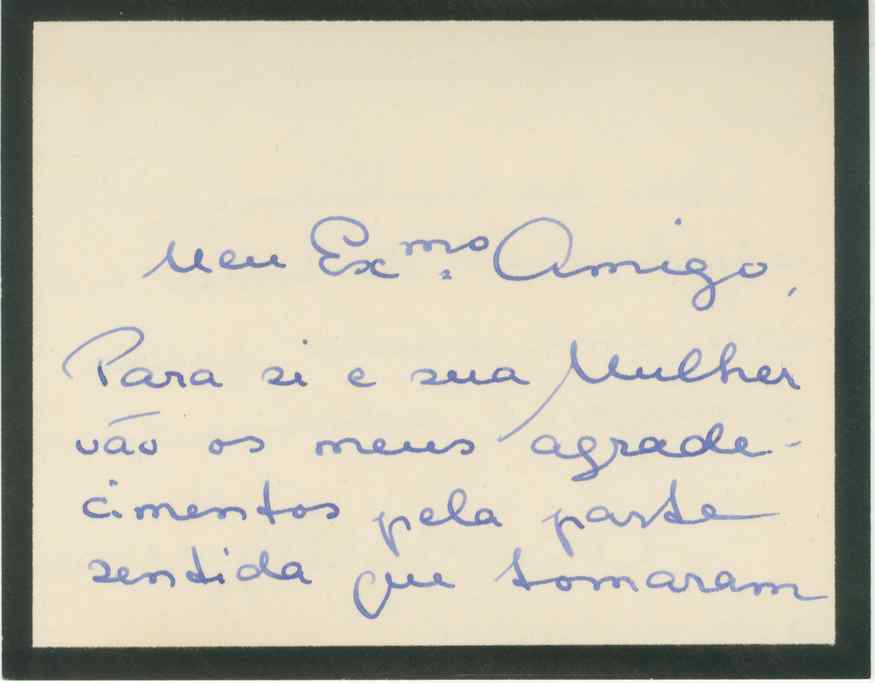 Meu Ex.mo Amigo,
Para si e sua Mulher
vão os meus agrade-
cimentos pela parte
sentida que tomaram